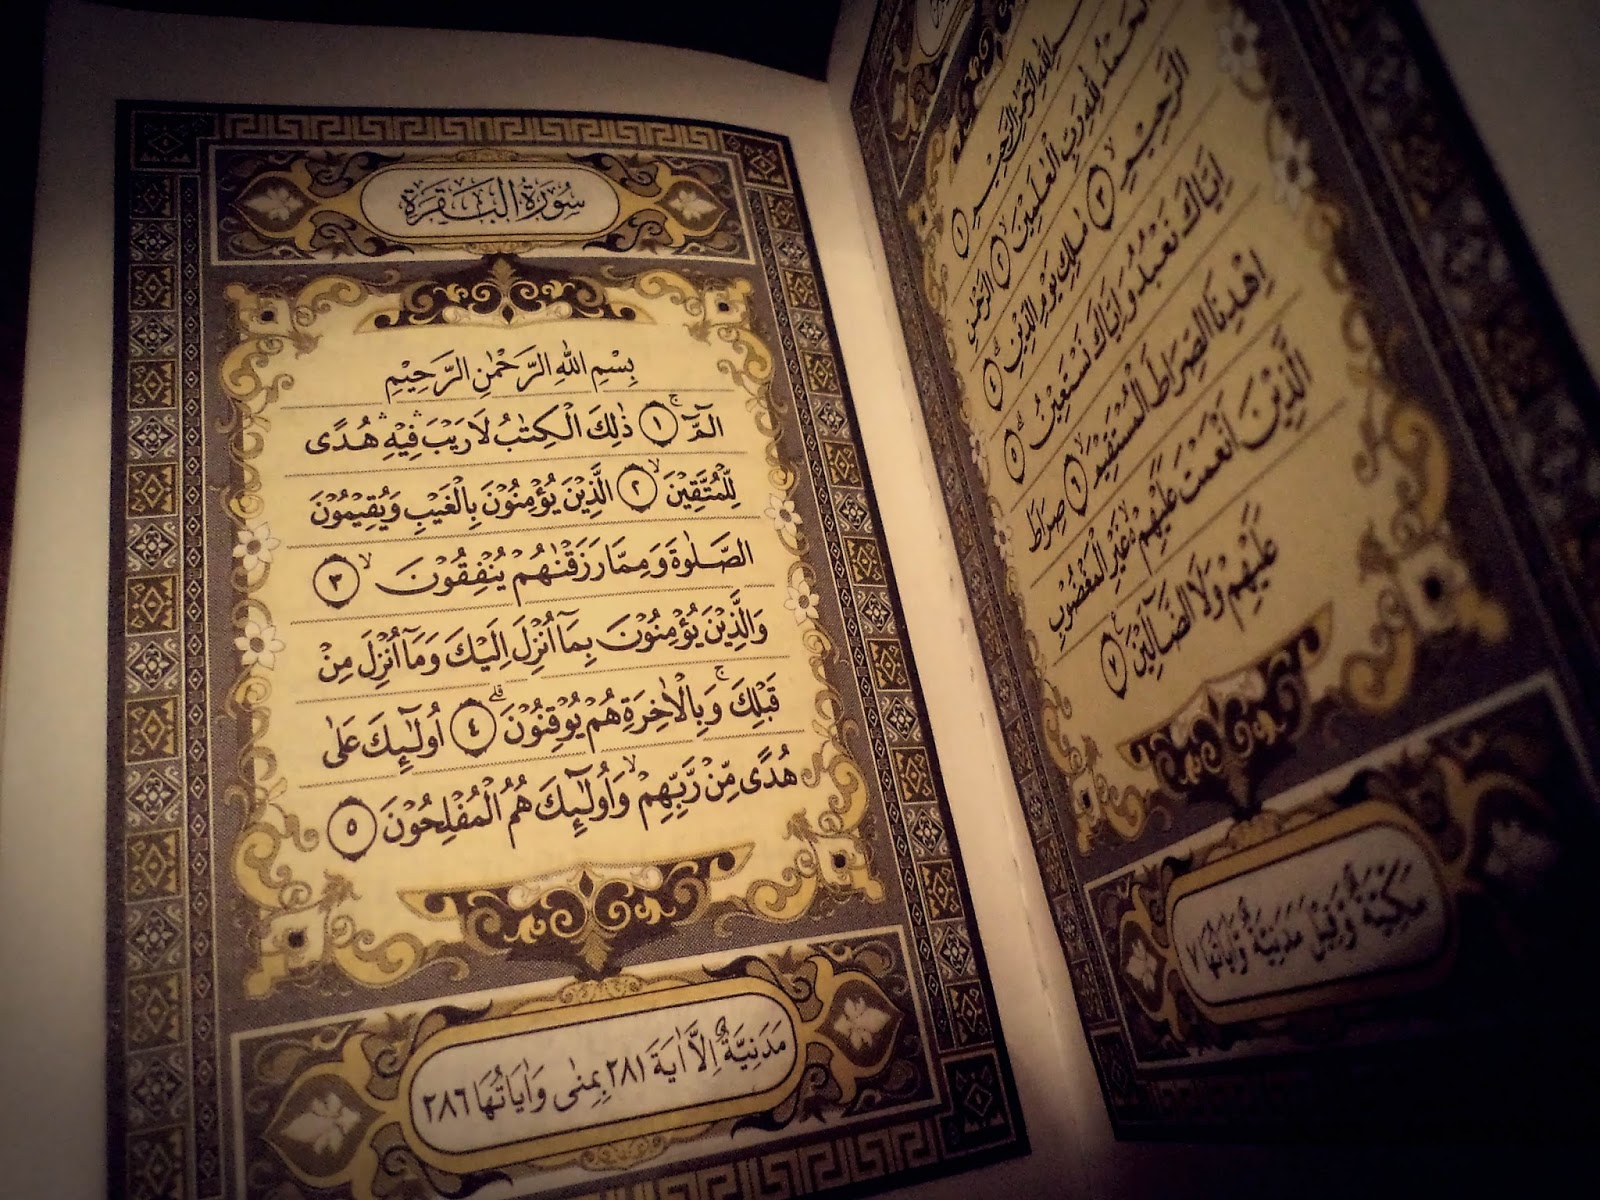 اللهِ الرَّحْمٰنِ الرَّحِيْمِ ١
الْحَمْدُ لِلّٰهِ رَبِّ الْعٰلَمِيْنَۙ ٢ الرَّحْمٰنِ
الرَّحِيْمِۙ ٣ مٰلِكِ يَوْمِ الدِّيْنِۗ ٤
اِيَّاكَ نَعْبُدُ وَاِيَّاكَ نَسْتَعِيْنُۗ ٥
اِهْدِنَا الصِّرَاطَ الْمُسْتَقِيْمَۙ ٦ صِرَاطَ
الَّذِيْنَ اَنْعَمْتَ عَلَيْهِمْۙ غَيْرِ الْمَغْضُوْبِ
عَلَيْهِمْ وَلَا الضَّآلِّيْنَࣖ ٧
مَكِّيَّةٌ وَقِيْلَ مَدَنِيَّةٌ وَاٰيَاتُهَا ٧
سُوْرَةُ الْبَقَرَةِ
بِسْمِ اللهِ الرَّحْمٰنِ الرَّحِيْمِ
الٓمّٓۚ ١ ذٰلِكَ الْكِتٰبُ لَا رَيْبَۛ فِيْهِۛ هُدًى
لِّلْمُتَّقِيْنَۙ ٢ الَّذِيْنَ يُؤْمِنُوْنَ بِالْغَيْبِ وَيُقِيْمُوْنَ
الصَّلٰوةَ وَمِمَّا رَزَقْنٰهُمْ يُنْفِقُوْنَۙ ٣
وَالَّذِيْنَ يُؤْمِنُوْنَ بِمَآ اُنْزِلَ اِلَيْكَ وَمَآ اُنْزِلَ مِنْ
قَبْلِكَۚ وَبِالْاٰخِرَةِ هُمْ يُوْقِنُوْنَۗ ٤ اُولٰۤىِٕكَ عَلٰى
هُدًى مِّنْ رَّبِّهِمْۙ وَاُولٰۤىِٕكَ هُمُ الْمُفْلِحُوْنَ ٥
مَدَنِيَّةٌ اِلَّا اٰيَةَ ٢٨١ بِمِنٰى وَاٰيَاتُهَا ٢٨٦